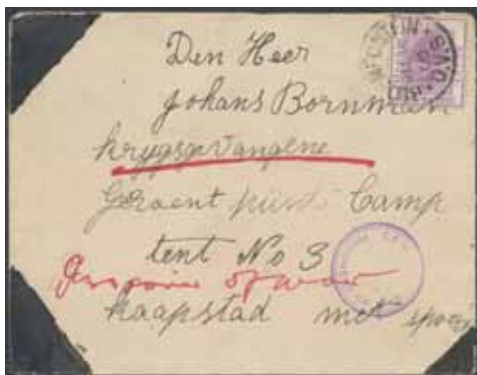 Den Heer
Johans Bornman
krygsgevangene
Geraent Camp
tent No 3
of war
Kaapstad met spoed